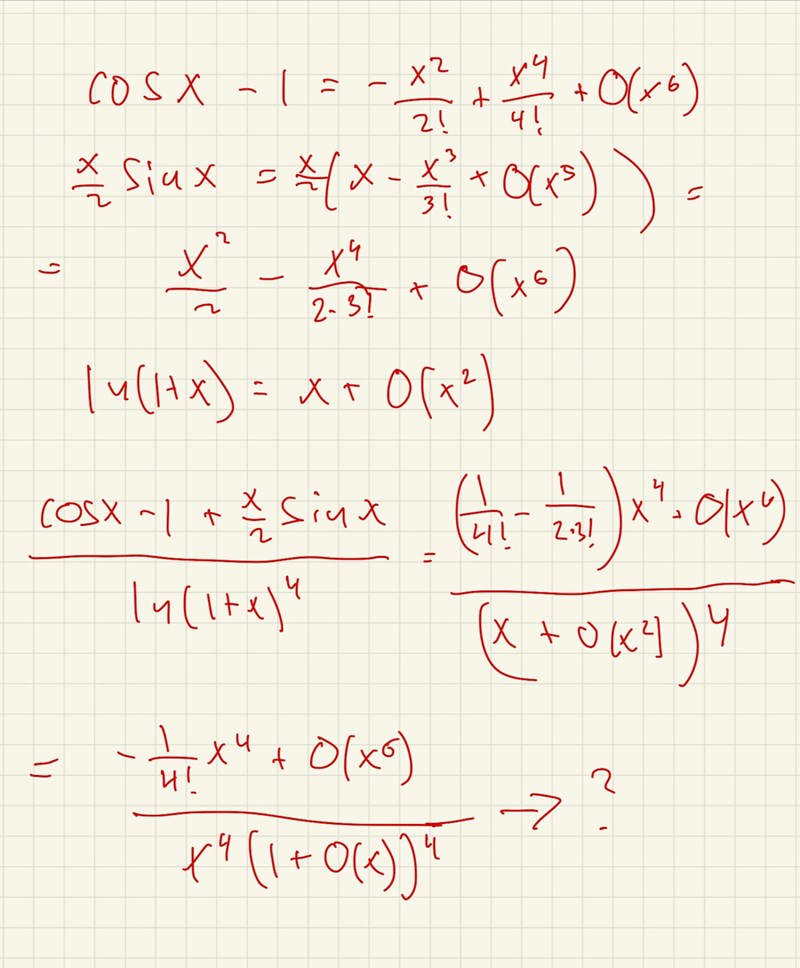 cos x - 1 = - x²/2! + x⁴/4! + O(x⁶)
x/2 sin x = x/2 (x - x³/3! + O(x⁵)) =
= x²/2 - x⁴/(2·3!) + O(x⁶)
ln(1+x) = x + O(x²)
(cos x - 1 + x/2 sin x)/(ln(1+x)⁴) = ((1/4! - 1/(2·3!)) x⁴ + O(x⁶))/((x + O(x²))⁴)
= (-1/4! x⁴ + O(x⁶))/(x⁴(1 + O(x))⁴) → ?